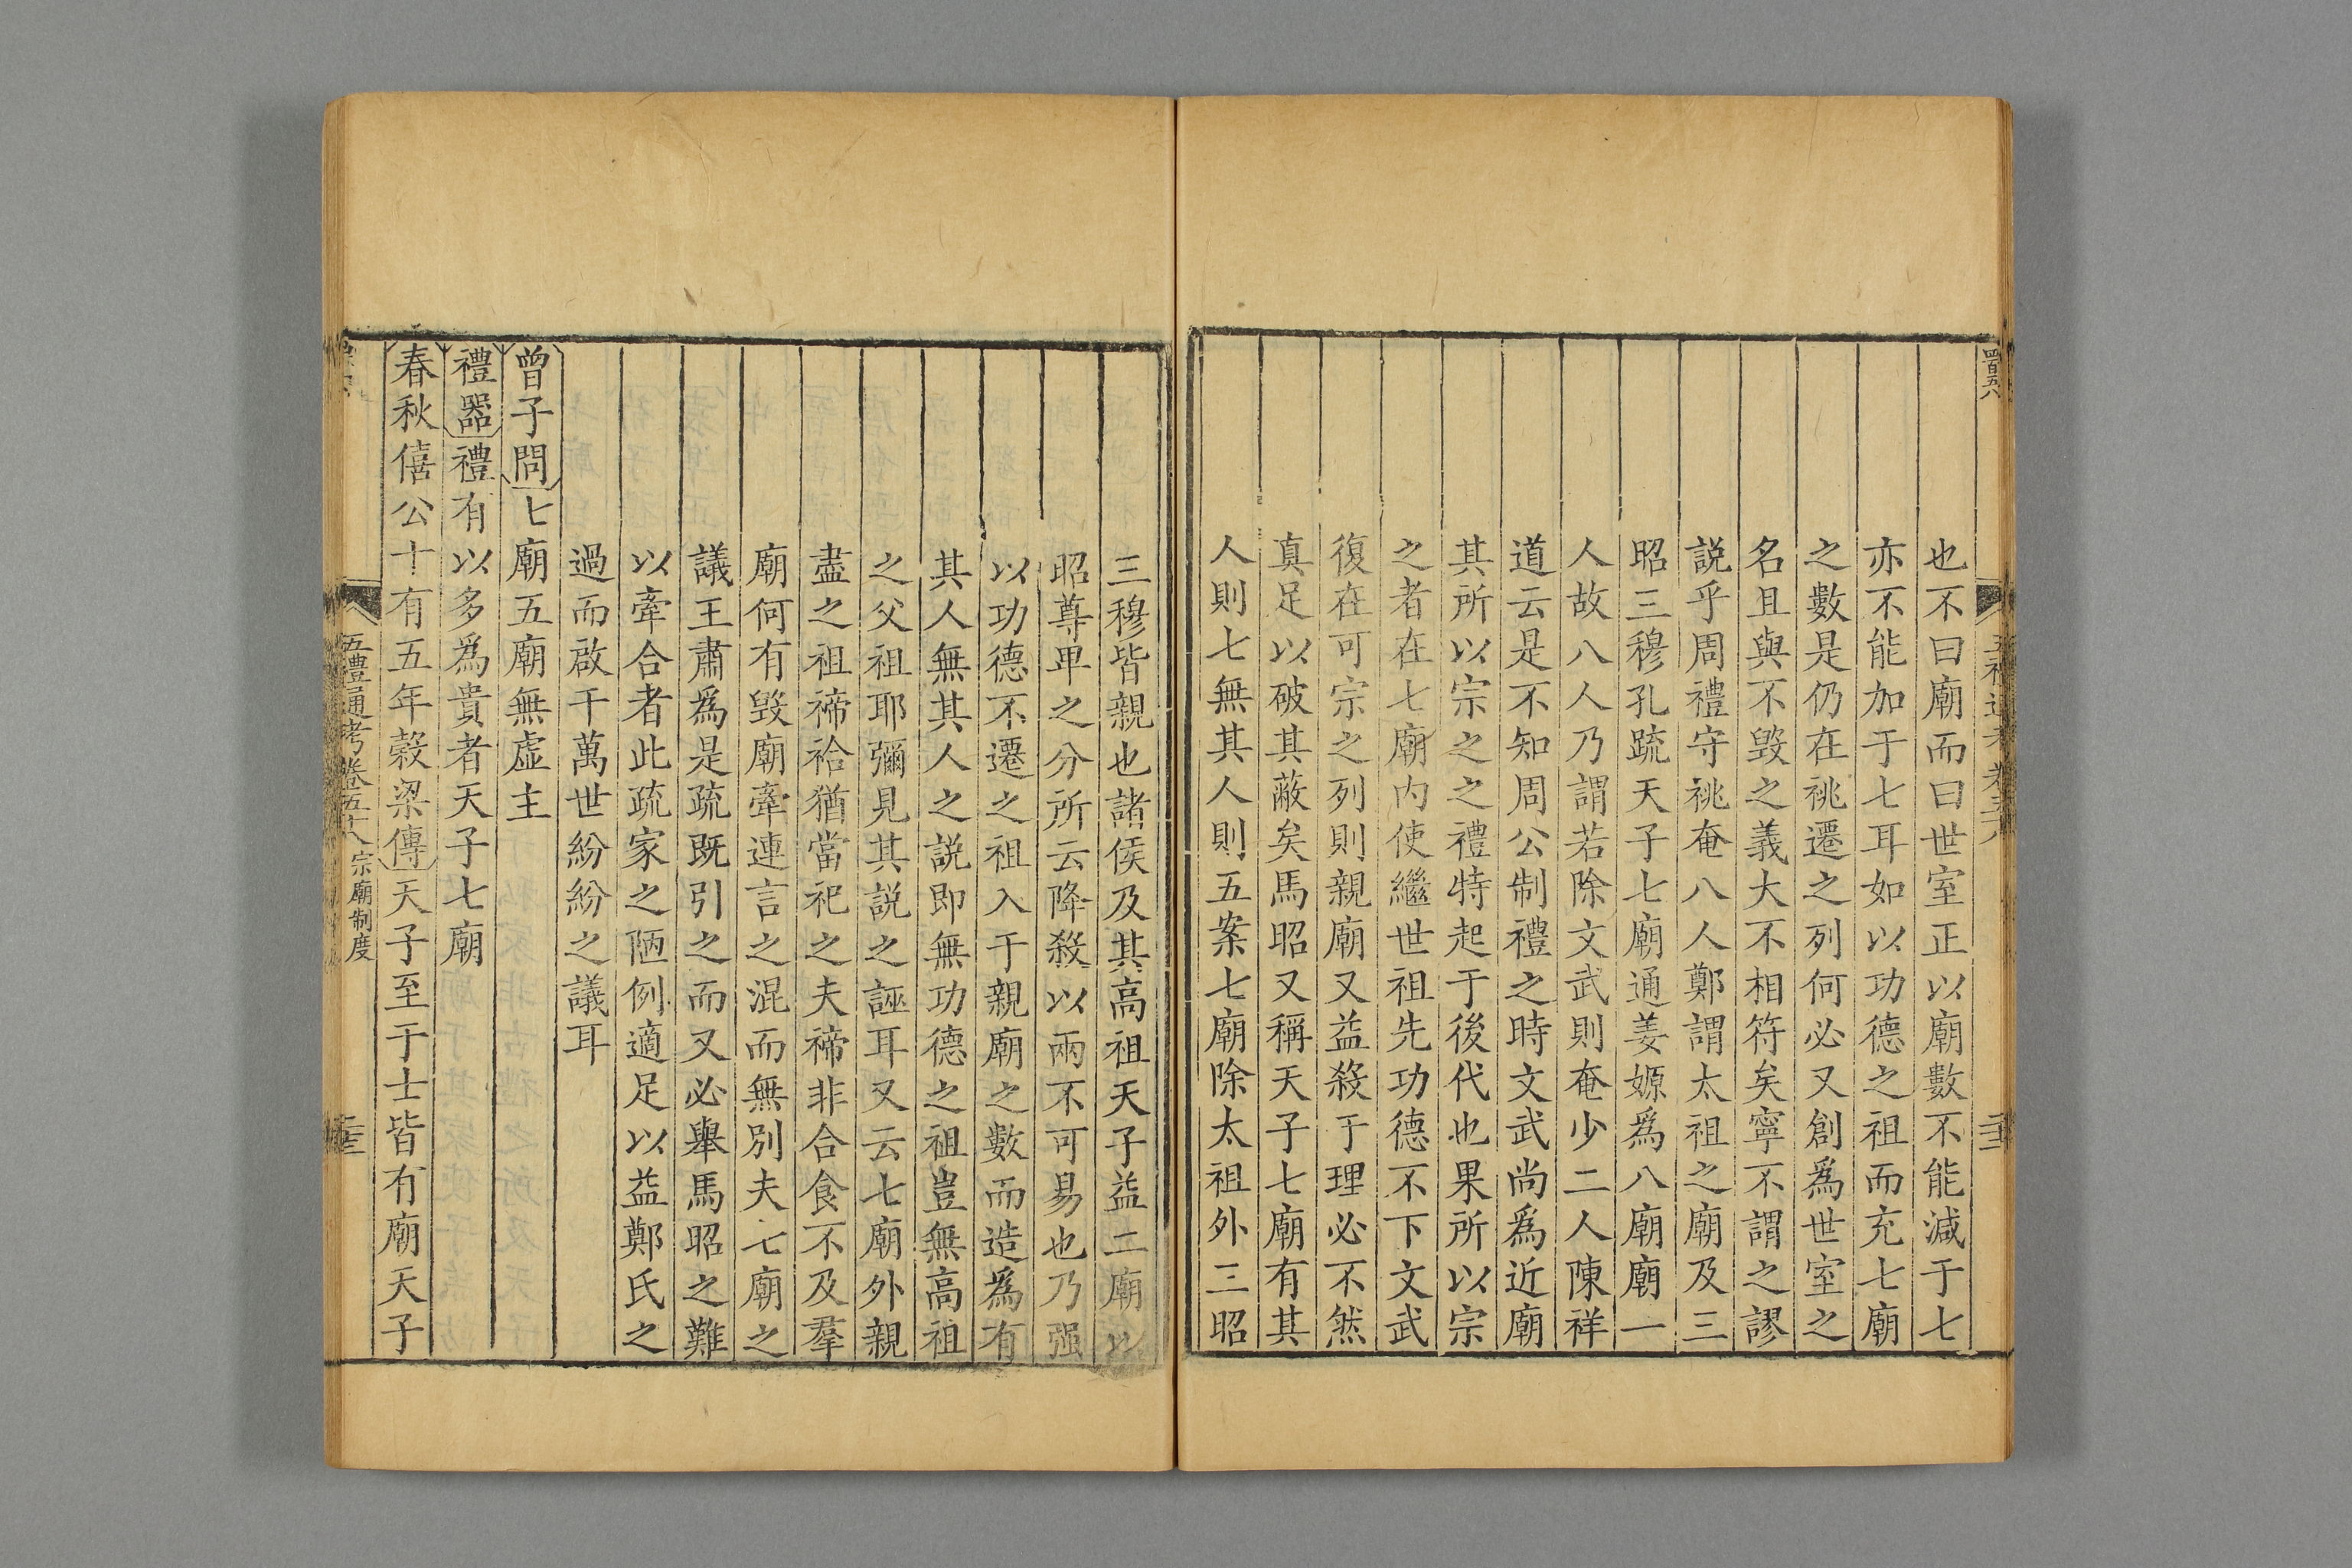 也不曰廟而曰世室正以廟數不能減于七
亦不能加于七耳如以功德之祖而充七廟
之數是仍在祧遷之列何必又創爲世室之
名且與不毀之義大不相符矣寧不謂之謬
説乎周禮守祧奄八人鄭謂太祖之廟及三
昭三穆孔䟽天子七廟通姜嫄爲八廟廟一
人故八人乃謂若除文武則奄少二人陳祥
道云是不知周公制禮之時文武尚爲近廟
其所以宗之之禮特起于後代也果所以宗
之者在七廟内使繼世祖先功德不下文武
復在可宗之列則親廟又益殺于理必不然
真足以破其蔽矣馬昭又稱天子七廟有其
人則七無其人則五案七廟除太祖外三昭
三穆皆親也諸侯及其高祖天子益二廟以
昭尊卑之分所云降殺以兩不可易也乃强
以功德不遷之祖入于親廟之數而造爲有
其人無其人之説即無功德之祖豈無高祖
之父祖耶彌見其説之誣耳又云七廟外親
盡之祖禘祫猶當祀之夫禘非合食不及羣
廟何有毀廟牽連言之混而無別夫七廟之
議王肅爲是疏既引之而又必舉馬昭之難
以牽合者此疏家之陋例適足以益鄭氏之
過而啟千萬世紛紛之議耳
曾子問七廟五廟無虚主
禮器禮有以多爲貴者天子七廟
春秋僖公十有五年榖梁傳天子至于士皆有廟天子
五禮通考卷五十八 宗廟制度